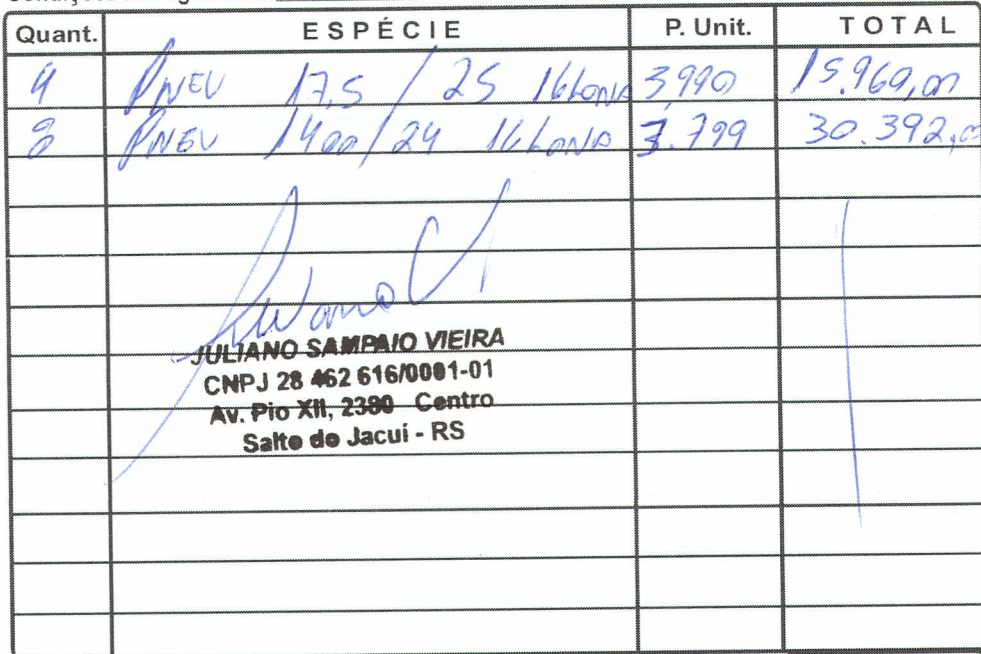 Quant. ESPÉCIE P. Unit. TOTAL
4 PNEU 17,5 / 25 16 LONA 3.990 15.960,00
8 PNEU 1400/24 16 LONA 3.799 30.392,00
JULIANO SAMPAIO VIEIRA
CNPJ 28 462 616/0001-01
Av. Pio XII, 2380 Centro
Salto do Jacuí - RS